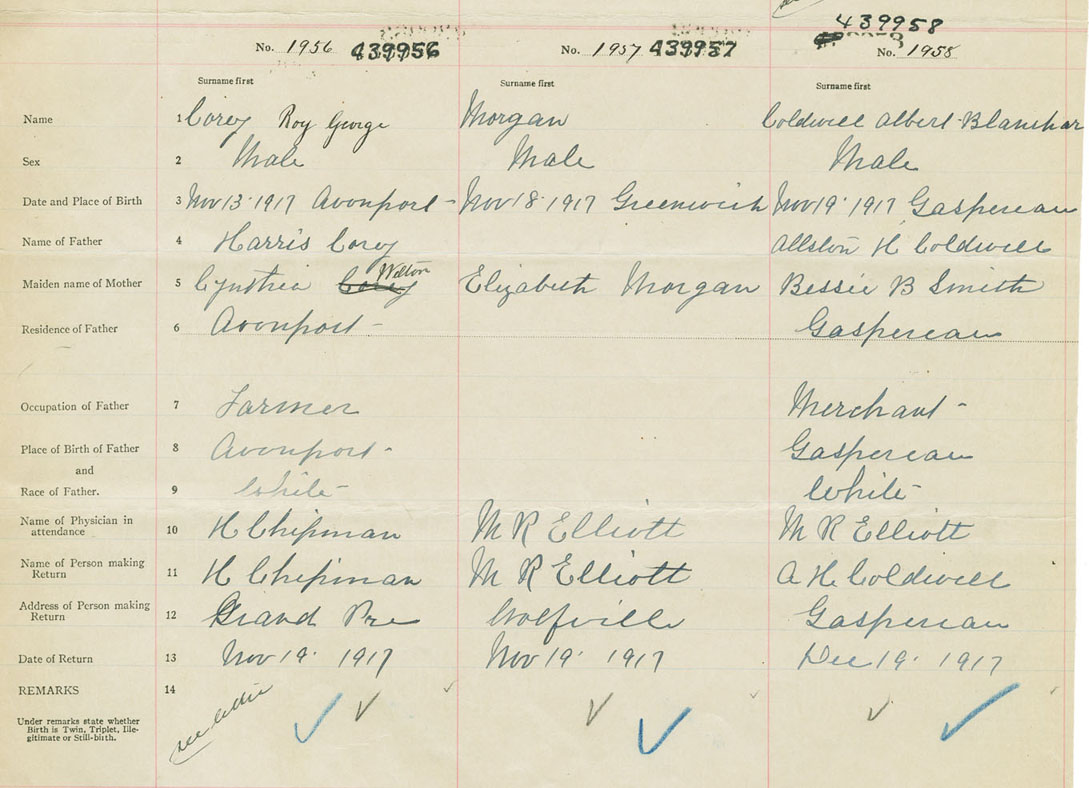 439958
No. 1956 439956 No. 1957 439957 No. 1958
Surname first Surname first Surname first
Name 1 Corey Roy George Morgan Coldwell Albert Blanchar
Sex 2 Male Male Male
Date and Place of Birth 3 Nov 13 1917 Avonport - Nov 18 1917 Greenwich Nov 19 1917 Gaspereau
Name of Father 4 Harris Corey Allston H Coldwell
Welton
Maiden name of Mother 5 Cynthia Corey Elizabeth Morgan Bessie B Smith
Residence of Father 6 Avonport - Gaspereau
Occupation of Father 7 Farmer Merchant -
Place of Birth of Father 8 Avonport - Gaspereau
and
Race of Father. 9 White White
Name of Physician in
attendance 10 H Chipman M R Elliott M R Elliott
Name of Person making
Return 11 H Chipman M R Elliott A H Coldwell
Address of Person making
Return 12 Grand Pre Wolfville Gaspereau
Date of Return 13 Nov 19 1917 Nov 19 1917 Dec 19 1917
REMARKS 14
see
Under remarks state whether
Birth is Twin, Triplet, Ille-
gitimate or Still-birth.